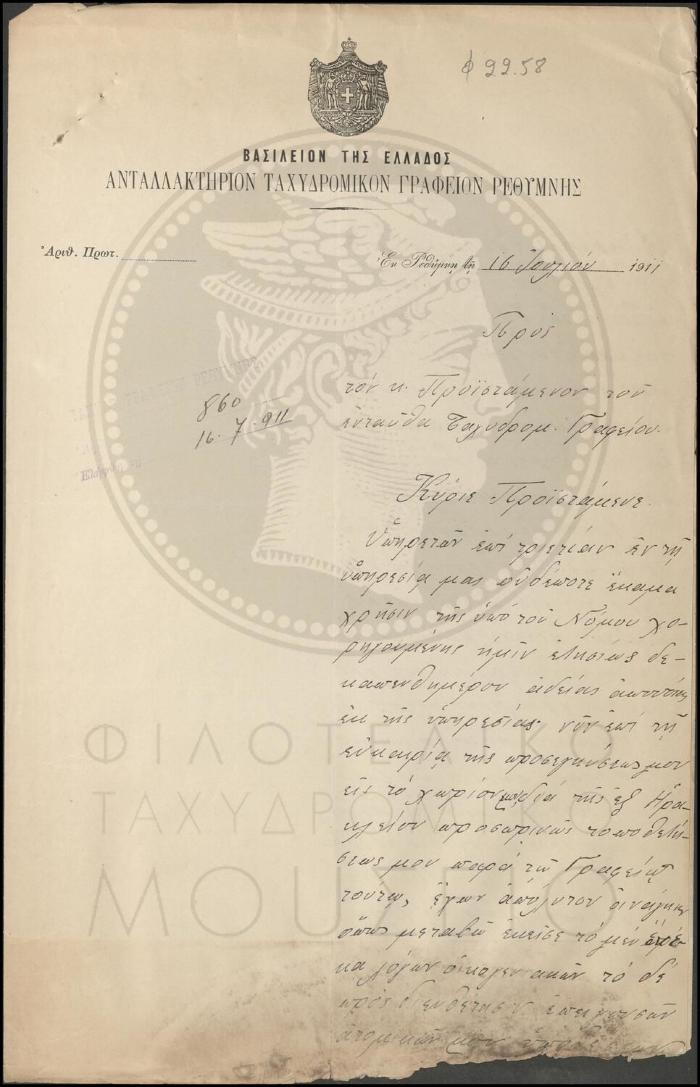 φ 22.58
ΒΑΣΙΛΕΙΟΝ ΤΗΣ ΕΛΛΑΔΟΣ
ΑΝΤΑΛΛΑΚΤΗΡΙΟΝ ΤΑΧΥΔΡΟΜΙΚΟΝ ΓΡΑΦΕΙΟΝ ΡΕΘΥΜΝΗΣ
Ἀριθ. Πρωτ.
Ἐν Ρεθύμνῃ τῇ 16 Ἰουλίου 1911
Πρὸς
τὸν κ. Προϊστάμενον τοῦ
ἐνταῦθα Ταχυδρομ. Γραφείου.
860
16.7.911
Κύριε Προϊστάμενε.
Ὑπηρετῶν ἐπὶ τριετίαν ἐν τῇ
ὑπηρεσίᾳ μας οὐδέποτε ἔκαμα
χρῆσιν τῆς ὑπὸ τοῦ Νόμου χο-
ρηγουμένης ἡμῖν ἐτησίως δε-
καπενθημέρου ἀδείας ἀπουσίας
ἐκ τῆς ὑπηρεσίας· νῦν ἐπὶ τῇ
εὐκαιρίᾳ τῆς προσεγγίσεώς μου
εἰς τὸ χωρίον μου διὰ τῆς ἐξ Ἡρα-
κλείου προσωρινῶς τοποθετή-
σεώς μου παρὰ τῷ Γραφείῳ
τούτῳ, ἔχων ἀπόλυτον ἀνάγκην
ὅπως μεταβῶ ἐκεῖσε τὸ μὲν ἕνε-
κα λόγων οἰκογενειακῶν τὸ δὲ
πρὸς διευθέτησιν ἐπειγουσῶν
ἀτομικῶν μου ὑποθέσεων
ΦΙΛΟΤΕΛΙΚΟ
ΤΑΧΥΔΡΟΜΙΚΟ
ΜΟΥΣΕΙΟ